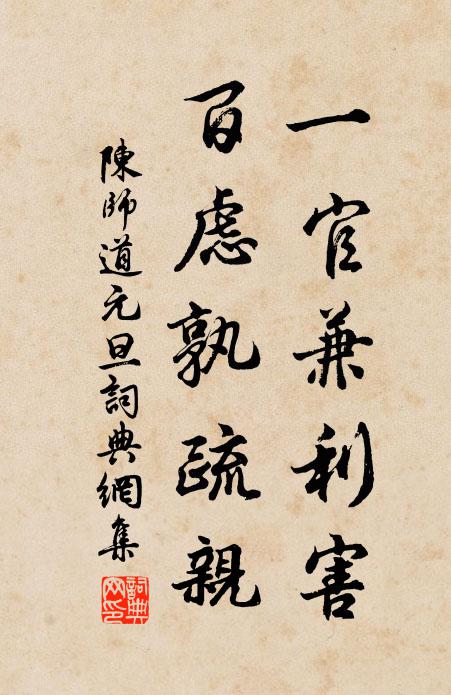 一官兼利害
百慮孰疏親
陳師道元旦詞典網集
詞典網印